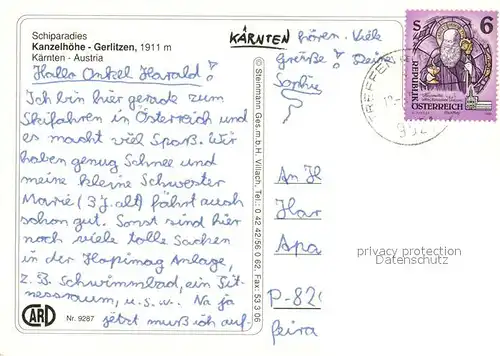 Schiparadies
Kanzelhöhe - Gerlitzen, 1911 m
Kärnten - Austria
Hallo Onkel Harald!
Ich bin hier gerade zum
Skifahren in Österreich und
es macht viel Spaß. Wir
haben genug Schnee und
meine kleine Schwester
Marie (3 J. alt) fährt auch
schon gut. Sonst sind hier
noch viele tolle Sachen
in der Hapimag Anlage,
z. B. Schwimmbad, ein Fit-
nessraum, u.s.w. Na ja
jetzt muß ich auf-
CARD
Nr. 9287
© Steinmann Ges.m.b.H. Villach, Tel.: 0 42 42/56 0 62, Fax: 53 3 06
KÄRNTEN
hören. Viele
Grüße! Deine
Sophie
TREFFEN
S 6
REPUBLIK
ÖSTERREICH
An H
Har
Apa
privacy protection
Datenschutz
P-820
feira